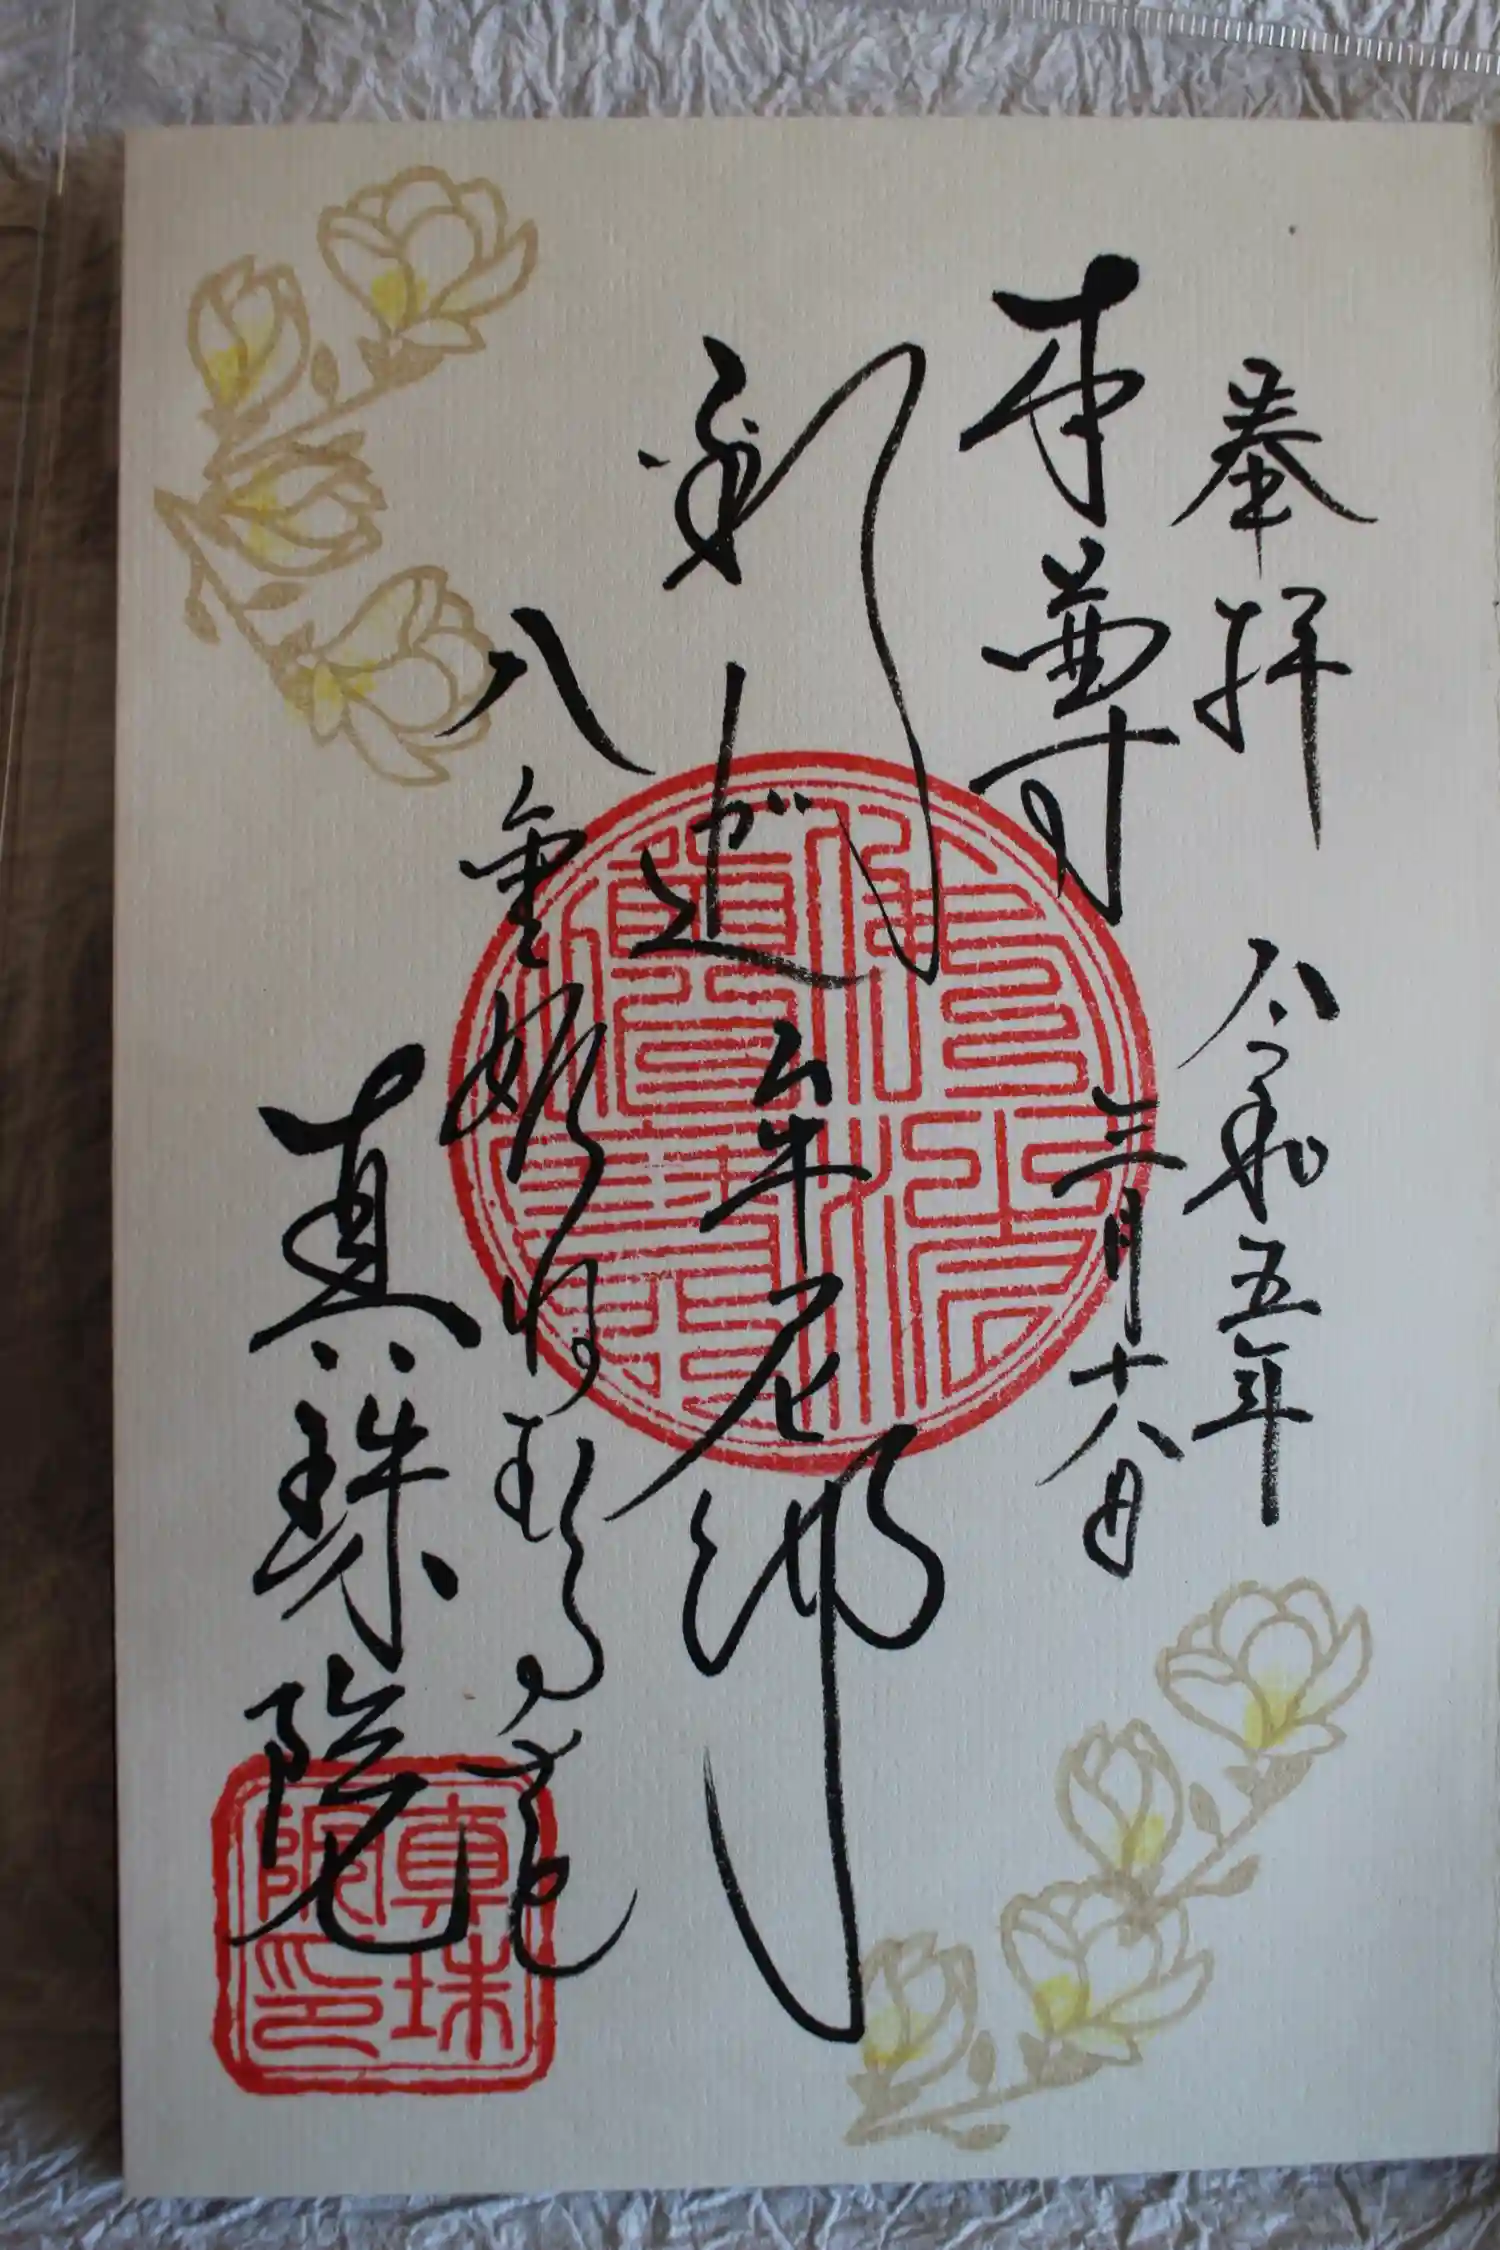 奉拝　令和五年
三月十八日
本尊
釈迦牟尼佛
八重姫
真珠院
真珠
院印